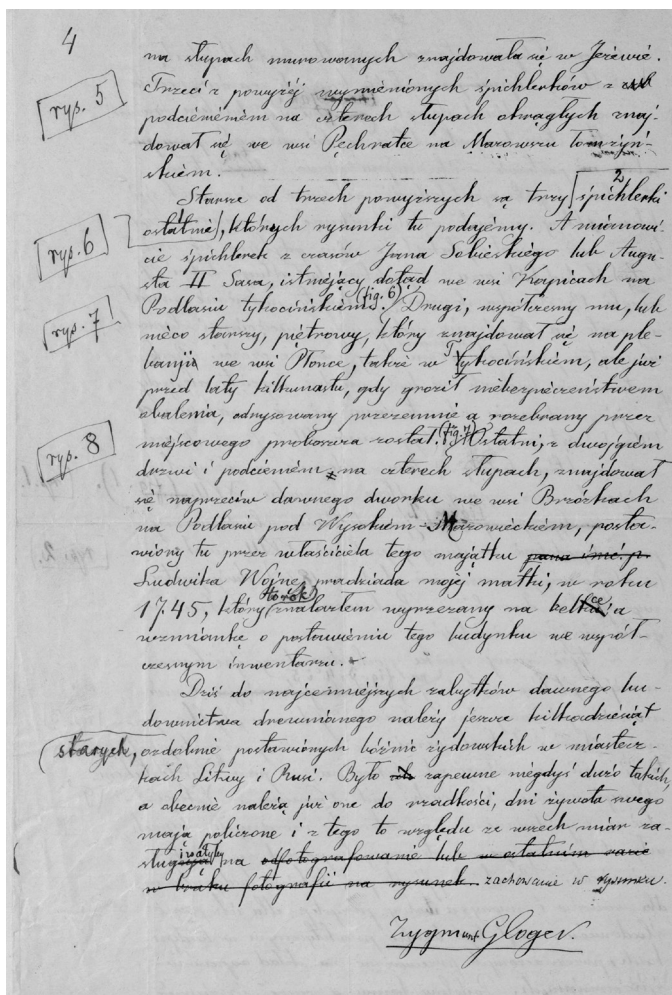 4
na słupach murowanych znajdowała się w Jeżewie.
rys. 5
Trzeci z powyżéj wymienionych śpichlerków z
podcieniem na czterech słupach okrągłych znaj-
dował się we wsi Pęchratce na Mazowszu łomżyń-
skiem.
Starsze od trzech powyższych są trzy śpichlerki 2
ostatnie, których rysunki tu podajemy. A mianowi-
rys. 6
cie śpichlerek z czasów Jana Sobieskiego lub Augu-
sta II Sasa, istniejący dotąd we wsi Kapicach na
Podlasiu tykocińskiem (fig. 6). Drugi, współczesny mu, lub
rys. 7
nieco starszy, piętrowy, który znajdował się na ple-
banji we wsi Płonce, także w Tykocińskiem, ale już
przed laty kilkunastu, gdy groził niebezpieczeństwem
obalenia, odrysowany przezemnie a rozebrany przez
miejscowego proboszcza został. (fig. 7) Ostatni, z dwojgiem
rys. 8
drzwi i podcieniem na czterech słupach, znajdował
się naprzeciw dawnego dworku we wsi Brzózkach
na Podlasiu pod Wysokiem-Mazowieckiem, posta-
wiony tu przez właściciela tego majątku pana imć. p.
Ludwika Wojnę, pradziada mojej matki, w roku
1745, który to rok znalazłem wyrzezany na belce a
wzmiankę o postawieniu tego budynku we współ-
czesnym inwentarzu.
Dziś do najcenniejszych zabytków dawnego bu-
downictwa drewnianego należy jeszcze kilkadziesiąt
starych, ozdobnie postawionych bóżnic żydowskich w miastecz-
kach Litwy i Rusi. Było zapewne niegdyś dużo takich,
a obecnie należą już one do rzadkości, dni żywota swego
mają policzone i z tego to względu ze wszech miar za-
na odfotografowanie lub w ostatnim razie
w braku fotografii na rysunek. zachowanie w rysunku.
Zygmunt Gloger.